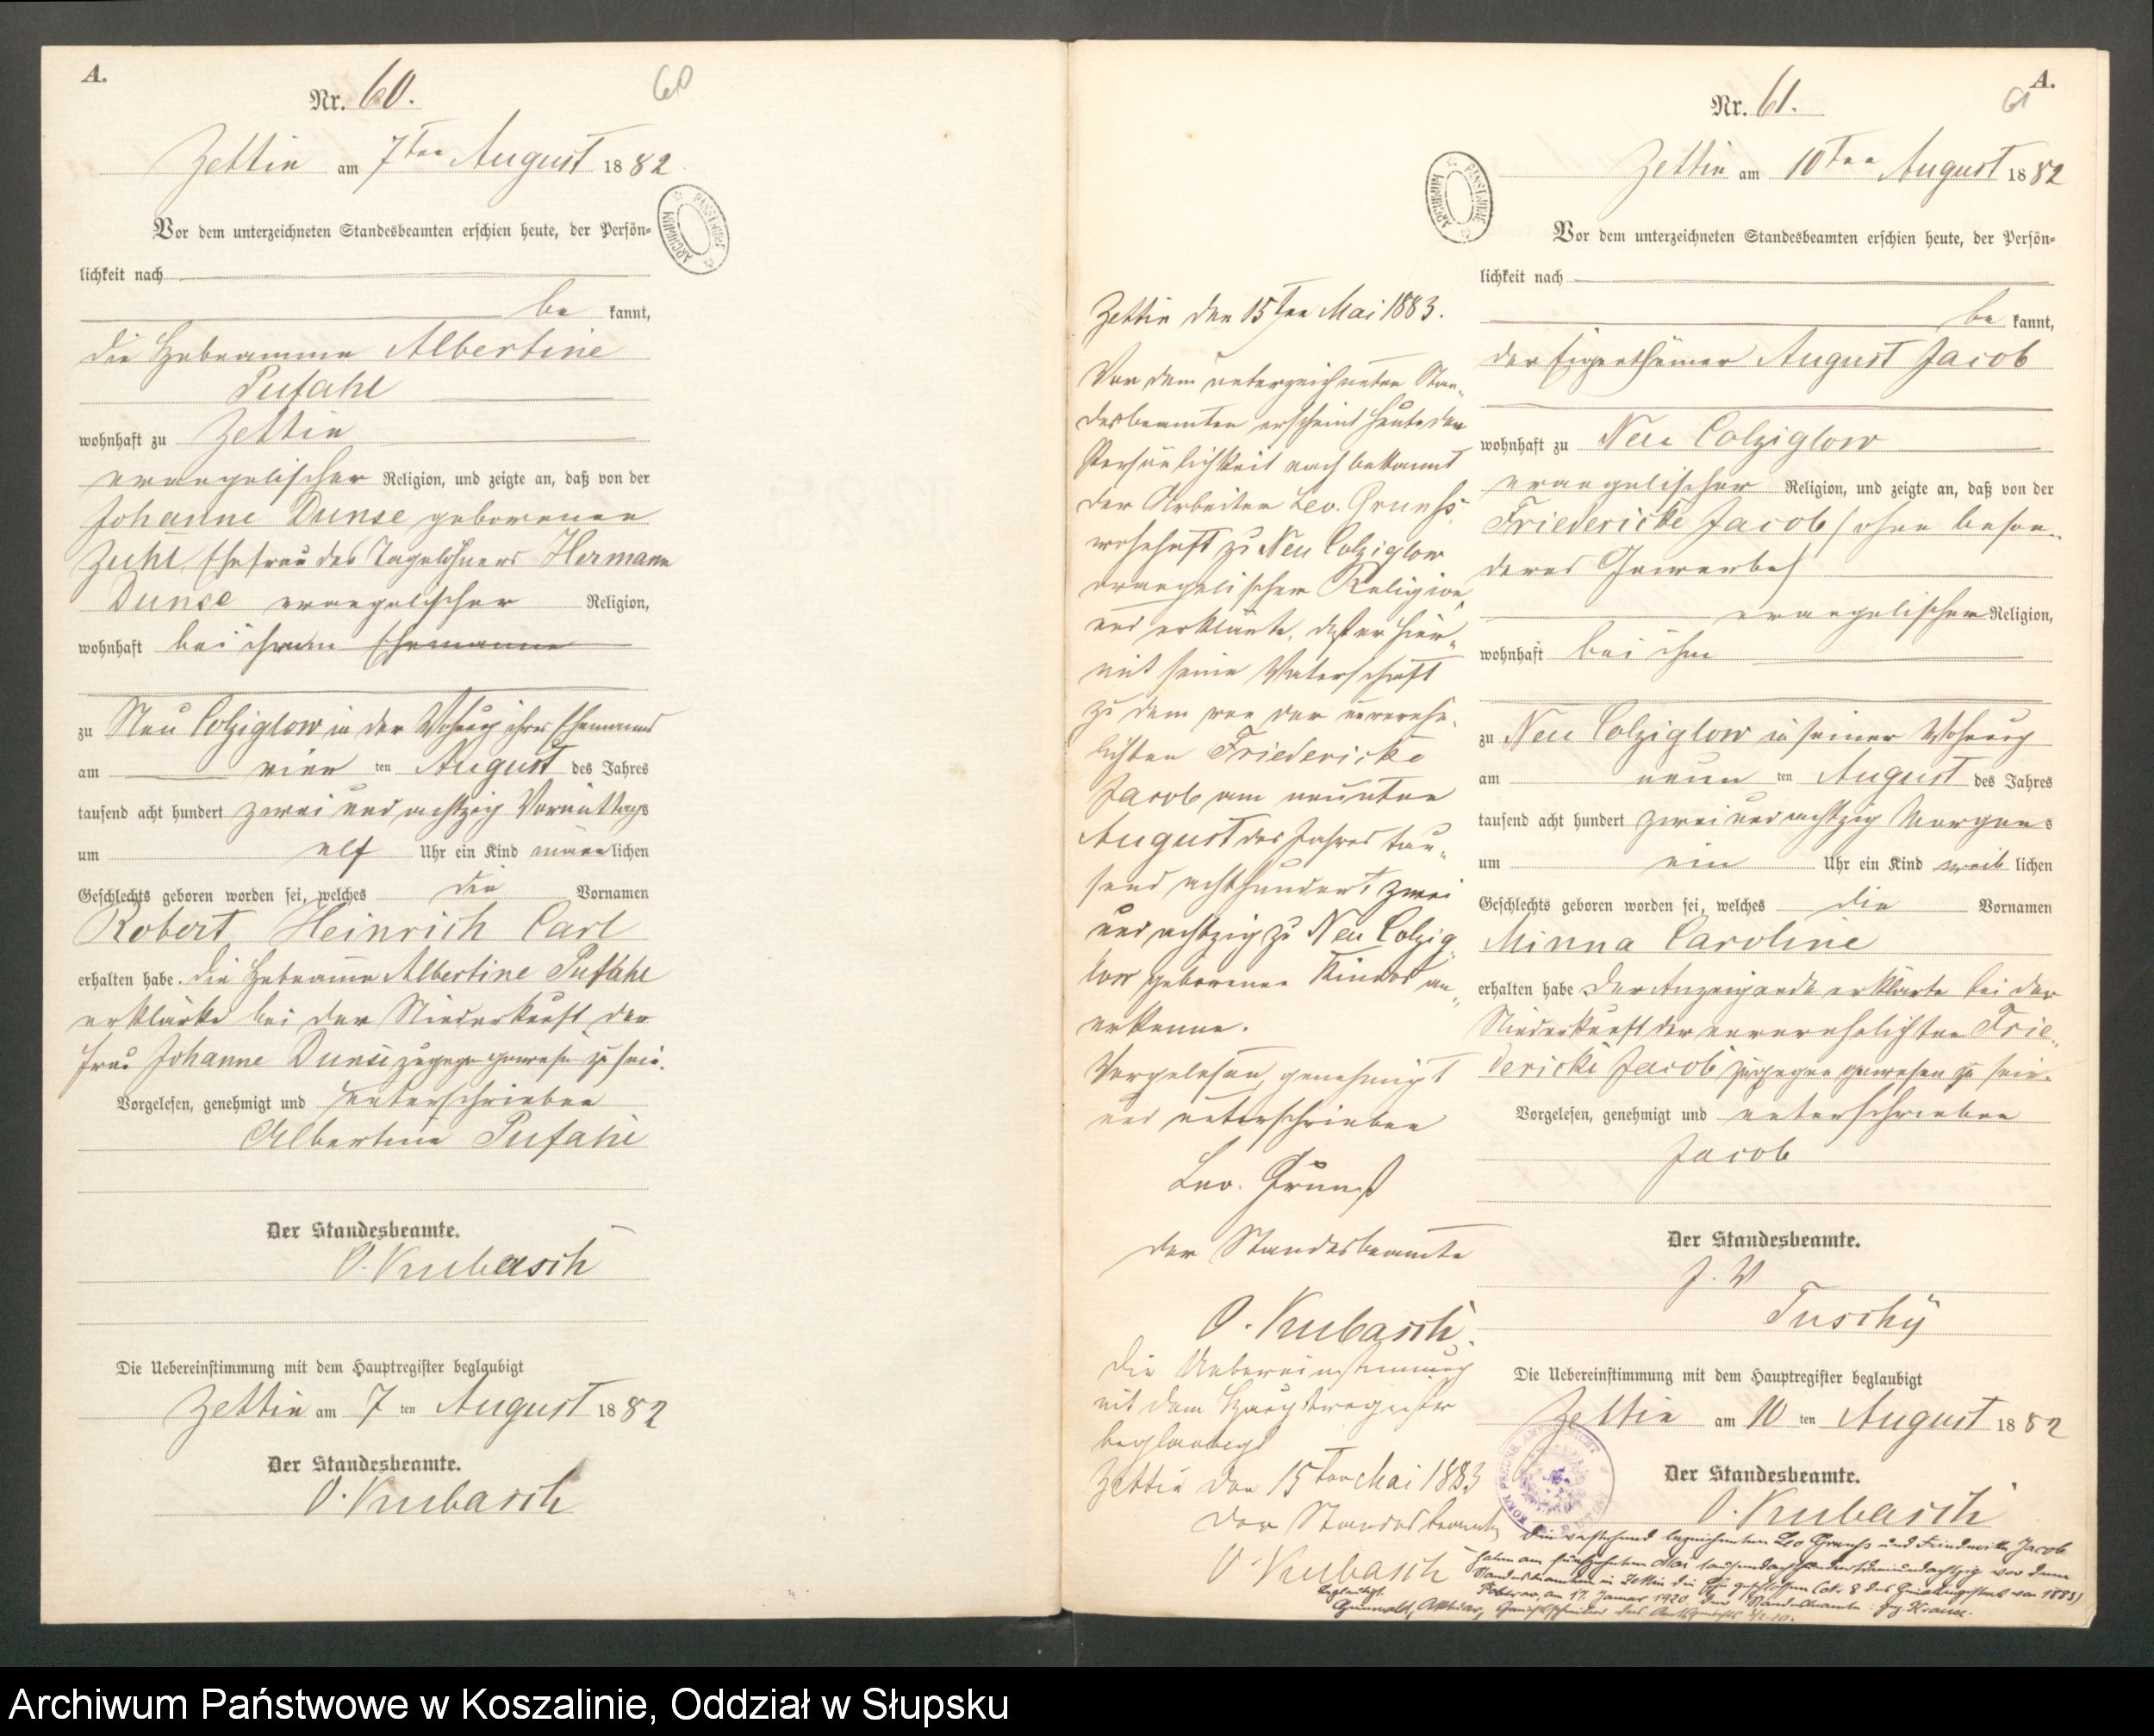 A.
Nr. 60.
60
Zettin am 7ten August 1882
Vor dem unterzeichneten Standesbeamten erschien heute, der Persön-
lichkeit nach
be kannt,
die Hebeamme Albertine
Pufahl
wohnhaft zu Zettin
evangelischer Religion, und zeigte an, daß von der
Johanne Dunse geborenen
Zuhl, Ehefrau des Tagelöhners Hermann
Dunse evangelischer Religion,
wohnhaft bei ihrem Ehemanne
zu Neu Colziglow in der Wohnung ihres Ehemanns
am vier ten August des Jahres
tausend acht hundert zwei und achtzig Vormittags
um elf Uhr ein Kind männlichen
Geschlechts geboren worden sei, welches die Vornamen
Robert Heinrich Carl
erhalten habe. Die Hebeamme Albertine Pufahl
erklärte bei der Niederkunft der
Frau Johanne Dunse zugegen gewesen zu sein.
Vorgelesen, genehmigt und unterschrieben
Albertine Pufahl
Der Standesbeamte.
O. Kubasch
Die Uebereinstimmung mit dem Hauptregister beglaubigt
Zettin am 7 ten August 1882
Der Standesbeamte.
O. Kubasch
ARCHIWUM PAŃSTWOWE
Zettin den 15ten Mai 1883.
Vor dem unterzeichneten Stan-
desbeamten erscheint heute der
Persönlichkeit nach bekannt
der Arbeiter Leo. Grunß
wohnhaft zu Neu Colziglow
evangelischer Religion,
und erklärte, daß er hier-
mit seine Vaterschaft
zu dem von der unverehe-
lichten Friedericke
Jacob am neunten
August des Jahres tau-
send achthundert zwei
und achtzig zu Neu Colzig-
low geborenen Kindes an-
erkenne.
Vorgelesen, genehmigt
und unterschrieben
Leo. Grunß
Der Standesbeamte
O. Kubasch.
Die Uebereinstimmung
mit dem Hauptregister
beglaubigt
Zettin den 15ten Mai 1883
Der Standesbeamte
O. Kubasch
ARCHIWUM PAŃSTWOWE
A.
Nr. 61.
61
Zettin am 10ten August 1882
Vor dem unterzeichneten Standesbeamten erschien heute, der Persön-
lichkeit nach
be kannt,
der Eigenthümer August Jacob
wohnhaft zu Neu Colziglow
evangelischer Religion, und zeigte an, daß von der
Friedericke Jacob (ohne beson-
deres Gewerbe)
evangelischer Religion,
wohnhaft bei ihm
zu Neu Colziglow in seiner Wohnung
am neun ten August des Jahres
tausend acht hundert zwei und achtzig Morgens
um ein Uhr ein Kind weib lichen
Geschlechts geboren worden sei, welches die Vornamen
Minna Caroline
erhalten habe Der Anzeigende erklärte bei der
Niederkunft der unverehelichten Frie-
dericke Jacob zugegen gewesen zu sein.
Vorgelesen, genehmigt und unterschrieben
Jacob
Der Standesbeamte.
J. V
Tuschy
Die Uebereinstimmung mit dem Hauptregister beglaubigt
Zettin am 10 ten August 1882
Der Standesbeamte.
O. Kubasch
Die vorstehend bezeichneten Leo Grunß und Friedericke Jacob
haben am fünfzehnten Mai tausendachthundertdreiundachtzig vor dem
Standesbeamten in Zettin die Ehe geschlossen (Nr. 8 des Heiratsregisters von 1883)
am 17. Januar 1920. Der Standesbeamte: gez. Krause.
Beglaubigt.
Grunwald, Aktuar, Gerichtsschreiber des Amtsgerichts
Archiwum Państwowe w Koszalinie, Oddział w Słupsku